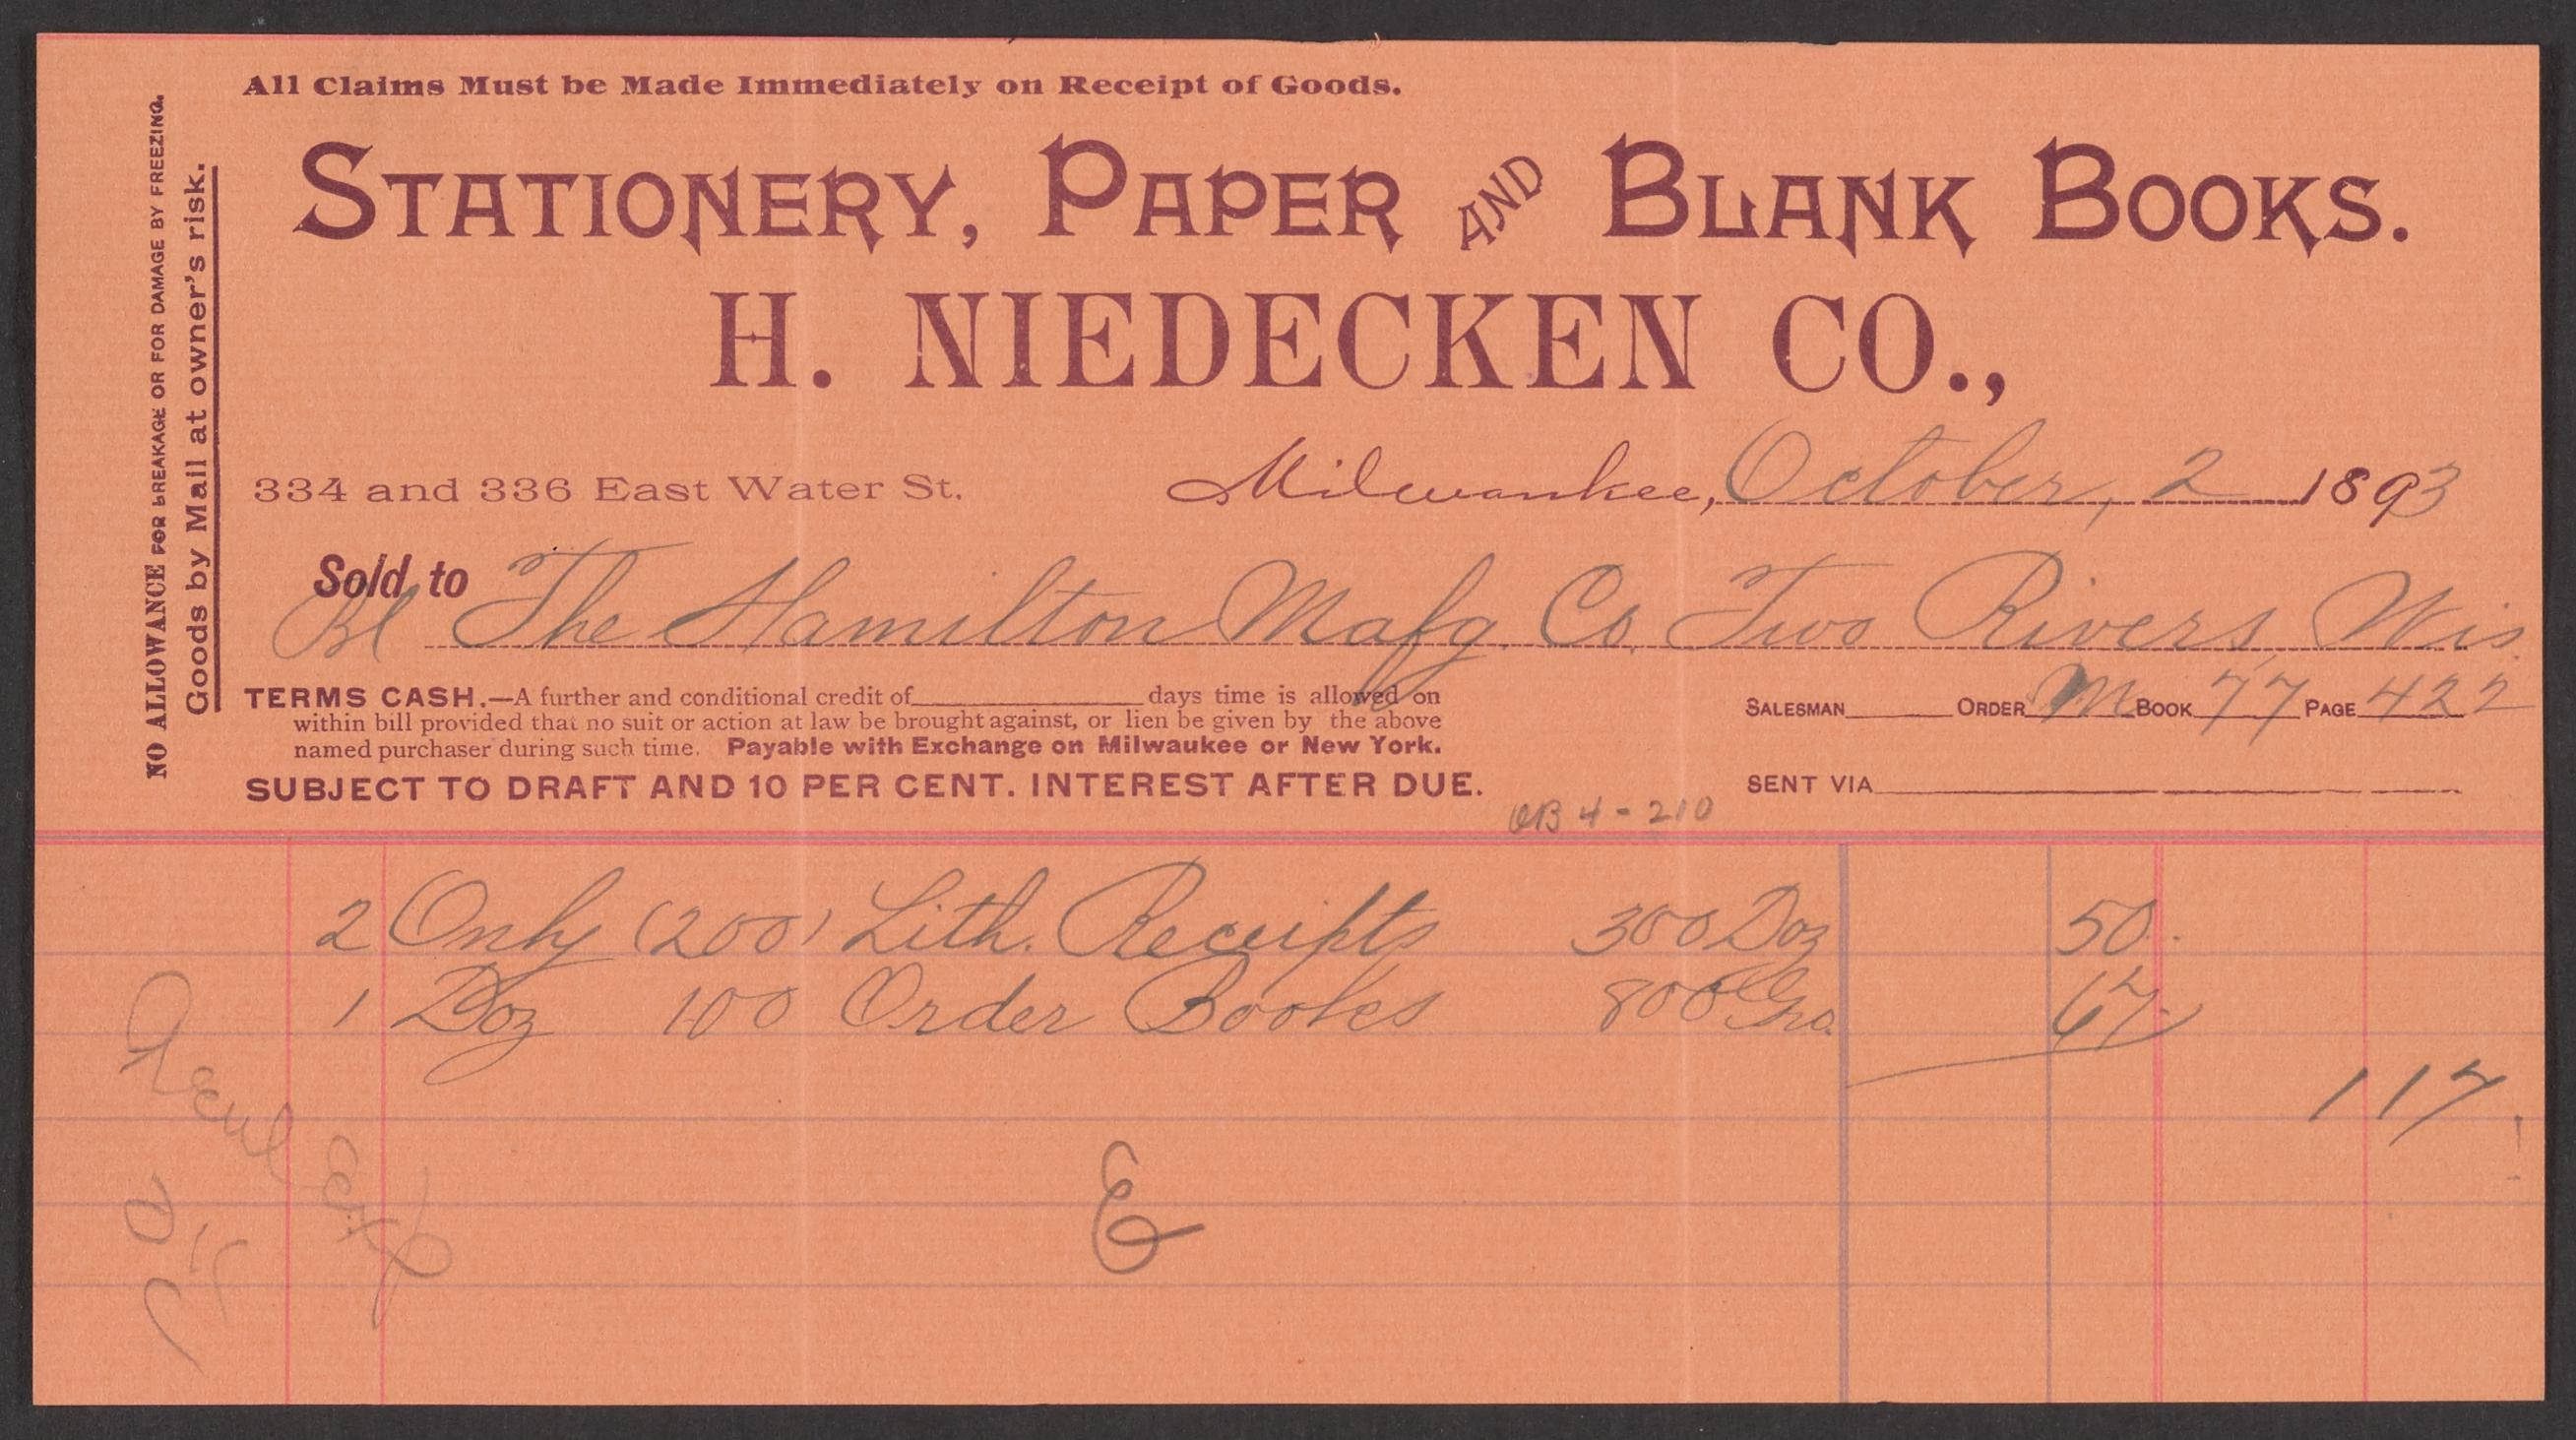 All Claims Must be Made Immediately on Receipt of Goods.
NO ALLOWANCE FOR BREAKAGE OR FOR DAMAGE BY FREEZING.
Goods by Mail at owner's risk.
STATIONERY, PAPER AND BLANK BOOKS.
H. NIEDECKEN CO.,
334 and 336 East Water St. Milwaukee, October, 2 1893
Sold to
Bl The Hamilton Mafg. Co. Two Rivers, Wis
TERMS CASH.—A further and conditional credit of ______ days time is allowed on
within bill provided that no suit or action at law be brought against, or lien be given by the above
named purchaser during such time. Payable with Exchange on Milwaukee or New York.
SUBJECT TO DRAFT AND 10 PER CENT. INTEREST AFTER DUE.
SALESMAN ORDER M BOOK 77 PAGE 422
SENT VIA
OB 4-210
2 Only (200) Lith. Receipts 300 Doz 50
1 Doz 100 Order Books 800 Gro. 67
117
Exp